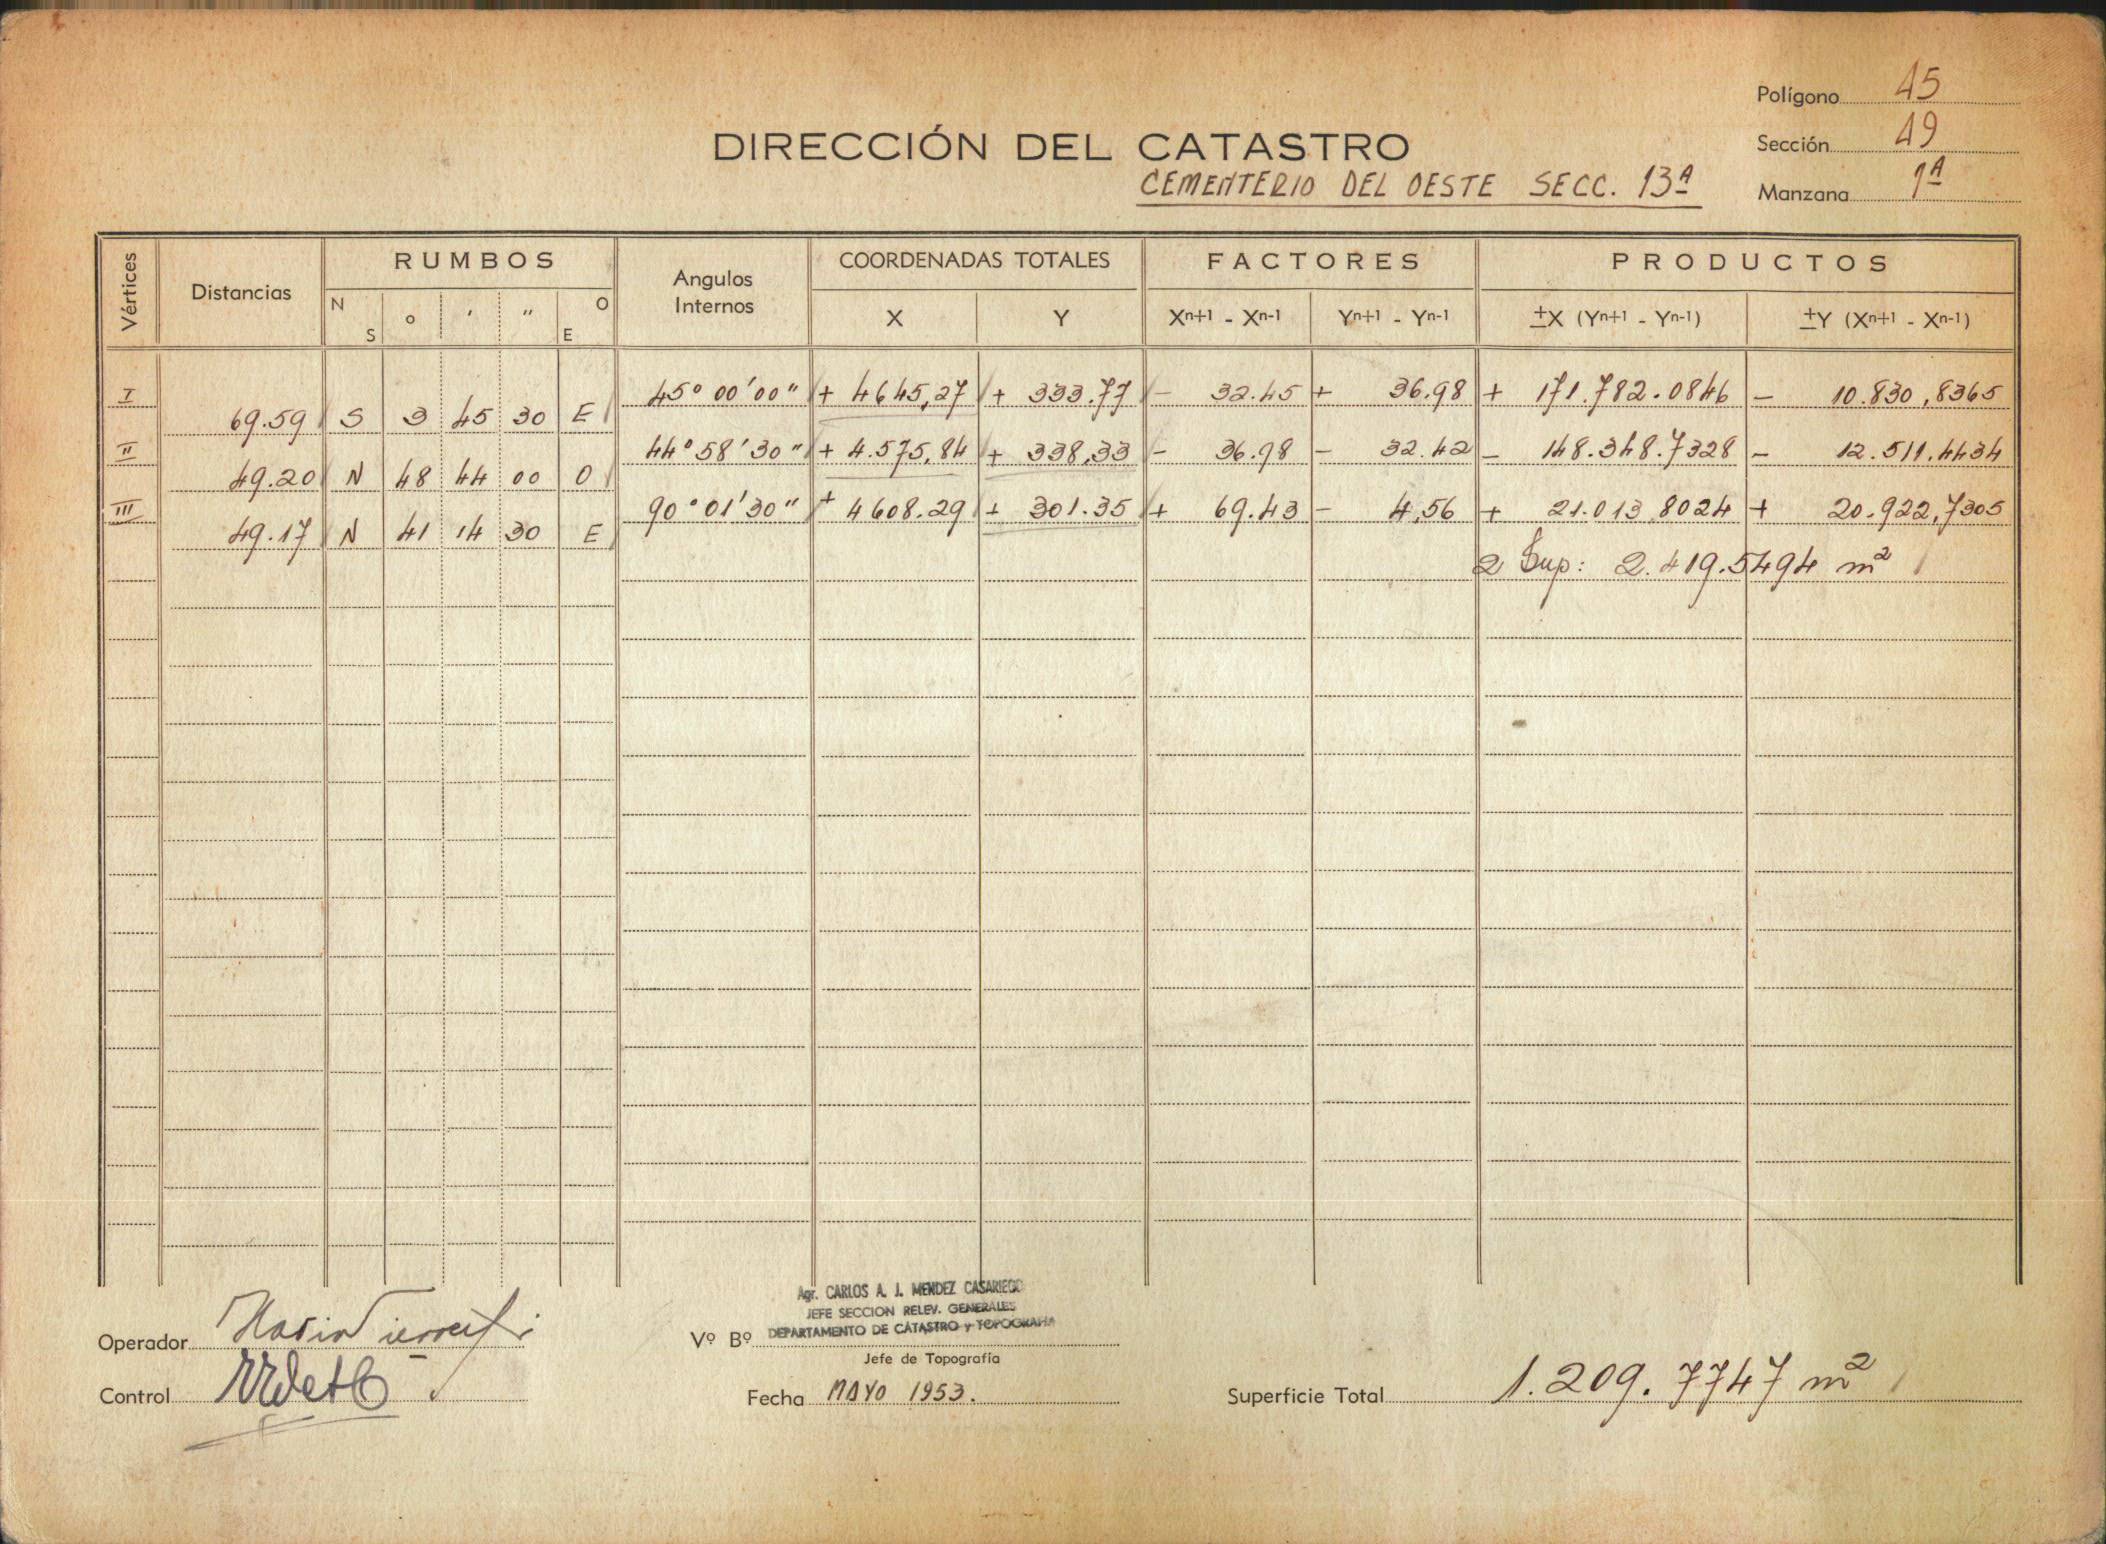 Polígono 45
DIRECCIÓN DEL CATASTRO
Sección 49
CEMENTERIO DEL OESTE SECC. 13ª
Manzana 1ª
Vértices Distancias RUMBOS Angulos Internos COORDENADAS TOTALES FACTORES PRODUCTOS
N S ° ' " O E X Y Xn+1 - Xn-1 Yn+1 - Yn-1 ±X (Yn+1 - Yn-1) ±Y (Xn+1 - Xn-1)
I 45° 00' 00" + 4645,27 + 333.77 - 32.45 + 36.98 + 171.782.0846 - 10.830,8365
69.59 S 3 45 30 E
II 44° 58' 30" + 4.575,84 + 338,33 - 36.98 - 32.42 - 148.348.7328 - 12.511.4434
49.20 N 48 44 00 O
III 90° 01' 30" + 4608.29 + 301.35 + 69.43 - 4,56 + 21.013,8024 + 20.922,7305
49.17 N 41 14 30 E
2 Sup: 2.419.5494 m²
Agr. CARLOS A. J. MENDEZ CASARIEGO
JEFE SECCION RELEV. GENERALES
DEPARTAMENTO DE CATASTRO y TOPOGRAFIA
Operador
Vº Bº
Jefe de Topografía
Control
Fecha MAYO 1953.
Superficie Total 1.209.7747 m²